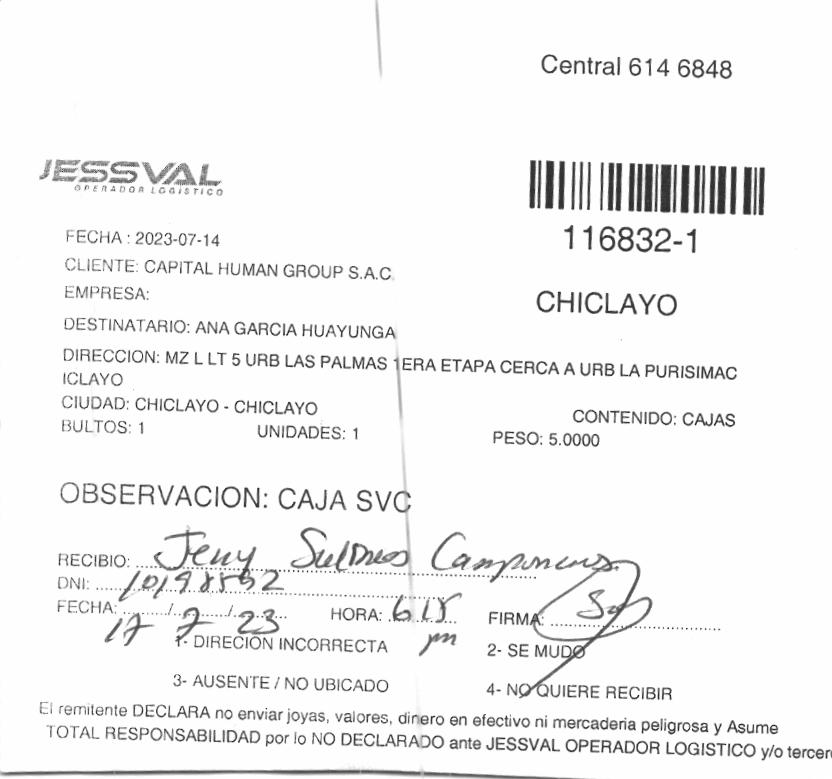 Central 614 6848
JESSVAL
OPERADOR LOGISTICO
116832-1
FECHA : 2023-07-14
CLIENTE: CAPITAL HUMAN GROUP S.A.C.
EMPRESA:
CHICLAYO
DESTINATARIO: ANA GARCIA HUAYUNGA
DIRECCION: MZ L LT 5 URB LAS PALMAS 1ERA ETAPA CERCA A URB LA PURISIMAC
ICLAYO
CIUDAD: CHICLAYO - CHICLAYO
CONTENIDO: CAJAS
BULTOS: 1 UNIDADES: 1 PESO: 5.0000
OBSERVACION: CAJA SVC
RECIBIO: Jeny
DNI:
FECHA: 17/7/23 HORA: 6 15 pm FIRMA:
1- DIRECION INCORRECTA 2- SE MUDO
3- AUSENTE / NO UBICADO 4- NO QUIERE RECIBIR
El remitente DECLARA no enviar joyas, valores, dinero en efectivo ni mercaderia peligrosa y Asume
TOTAL RESPONSABILIDAD por lo NO DECLARADO ante JESSVAL OPERADOR LOGISTICO y/o tercero